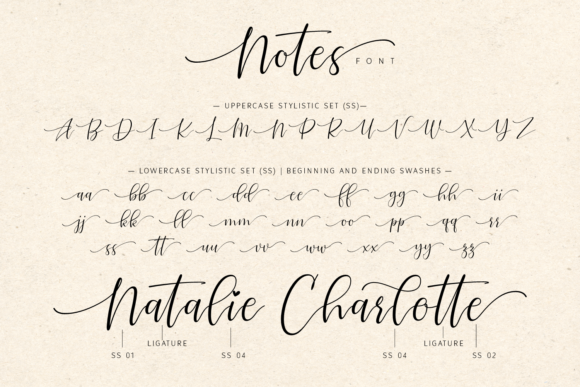 Notes FONT
— UPPERCASE STYLISTIC SET (SS)—
A B D I K L M N P R U V W X Y Z
— LOWERCASE STYLISTIC SET (SS) | BEGINNING AND ENDING SWASHES —
aa bb cc dd ee ff gg hh ii
jj kk ll mm nn oo pp qq rr
ss tt uu vv ww xx yy zz
Natalie Charlotte
LIGATURE LIGATURE
SS 01 SS 04 SS 04 SS 02